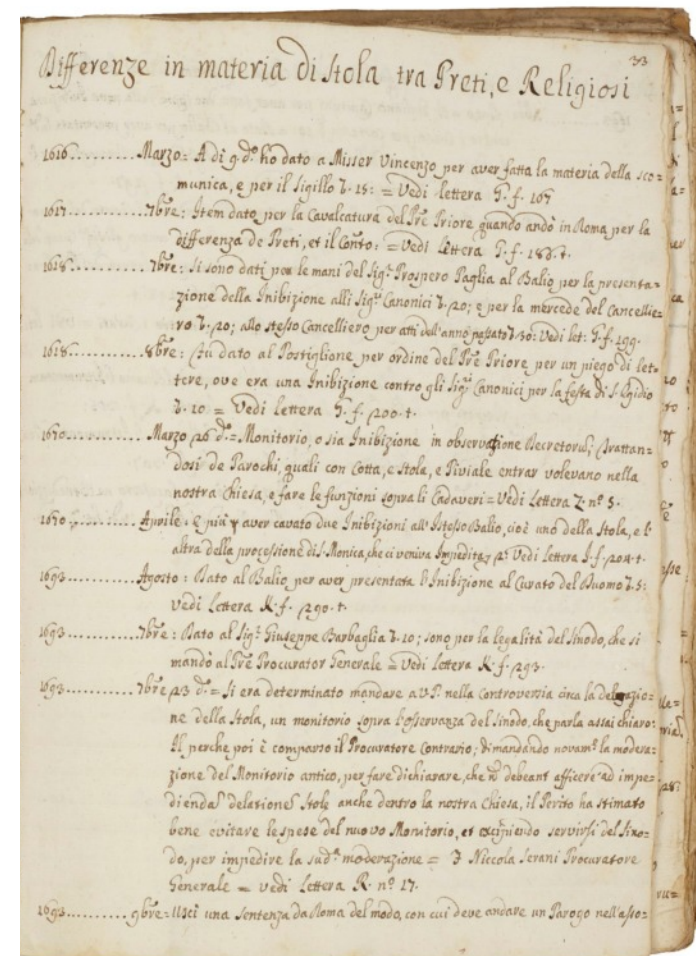 33
Differenze in materia di Stola tra Preti, e Religiosi
1616.......... Marzo = A di 9. d.º ho dato a Misser Vincenzo per aver fatta la materia della sco=
munica, e per il Sigillo b. 15: = Vedi lettera G. f. 167
1617.......... 7bre: Item dato per la Cavalcatura del Prē Priore quando andò in Roma per la
differenza de Preti, et il Conto: = Vedi Lettera G. f. 183. t.
1618.......... 7bre: Si sono dati per le mani del Sig.r Prospero Paglia al Balio per la presenta=
zione della Inibizione alli Sig.ri Canonici b. 20; e per la mercede del Cancellie=
ro b. 20; allo stesso Cancelliero per atti dell'anno passato b. 30: Vedi let: G. f. 199.
1618.......... 8bre: Fu dato al Postiglione per ordine del Prē Priore per un piego di let=
tere, ove era una Inibizione contro gli Sig.ri Canonici per la festa di S. Egidio
b. 10 = Vedi lettera G. f. 200. t.
1670.......... Marzo 26 d.º = Monitorio, o sia Inibizione in observatione Decretorum; Trattan=
dosi de Parochi, quali con Cotta, e Stola, e Piviale entrar volevano nella
nostra Chiesa, e fare le funzioni sopra li Cadaveri = Vedi Lettera Z. nº 5.
1670.......... Aprile. E più p aver cavato due Inibizioni all'Istesso Balio, cioè uno della Stola, e l'
altra della processione di S. Monica, che ci veniva Impedita, Vedi Lettera J. f. 204. t.
1693.......... Agosto: Dato al Balio per aver presentata l'Inibizione al Curato del Duomo b. 5:
Vedi Lettera K. f. 290. t.
1693.......... 7bre: Dato al Sig.r Giuseppe Barbaglia b. 10; sono per la legalità del Sinodo, che si
mandò al Prē Procurator Generale = Vedi Lettera K. f. 293.
1693.......... 7bre 23 d.º = Si era determinato mandare a V.P. nella Controversia circa la delazio=
ne della Stola, un monitorio sopra l'osservanza del Sinodo, che parla assai chiaro:
Il perche poi è comparso il Procuratore Contrario; dimandando novam.te la modera=
zione del Monitorio antico, per fare dichiarare, che nō debeant afficere ad impe=
dienda delatione Stole anche dentro la nostra Chiesa, il Perito ha stimato
bene evitare le spese del nuovo Monitorio, et excipiendo servirsi del Sino=
do, per impedire la sud.a moderazione = F Niccola Serani Procuratore
Generale = Vedi Lettera R. nº 17.
1693.......... 9bre = Uscì una Sentenza da Roma del modo, con cui deve andare un Parogo nell'asso=